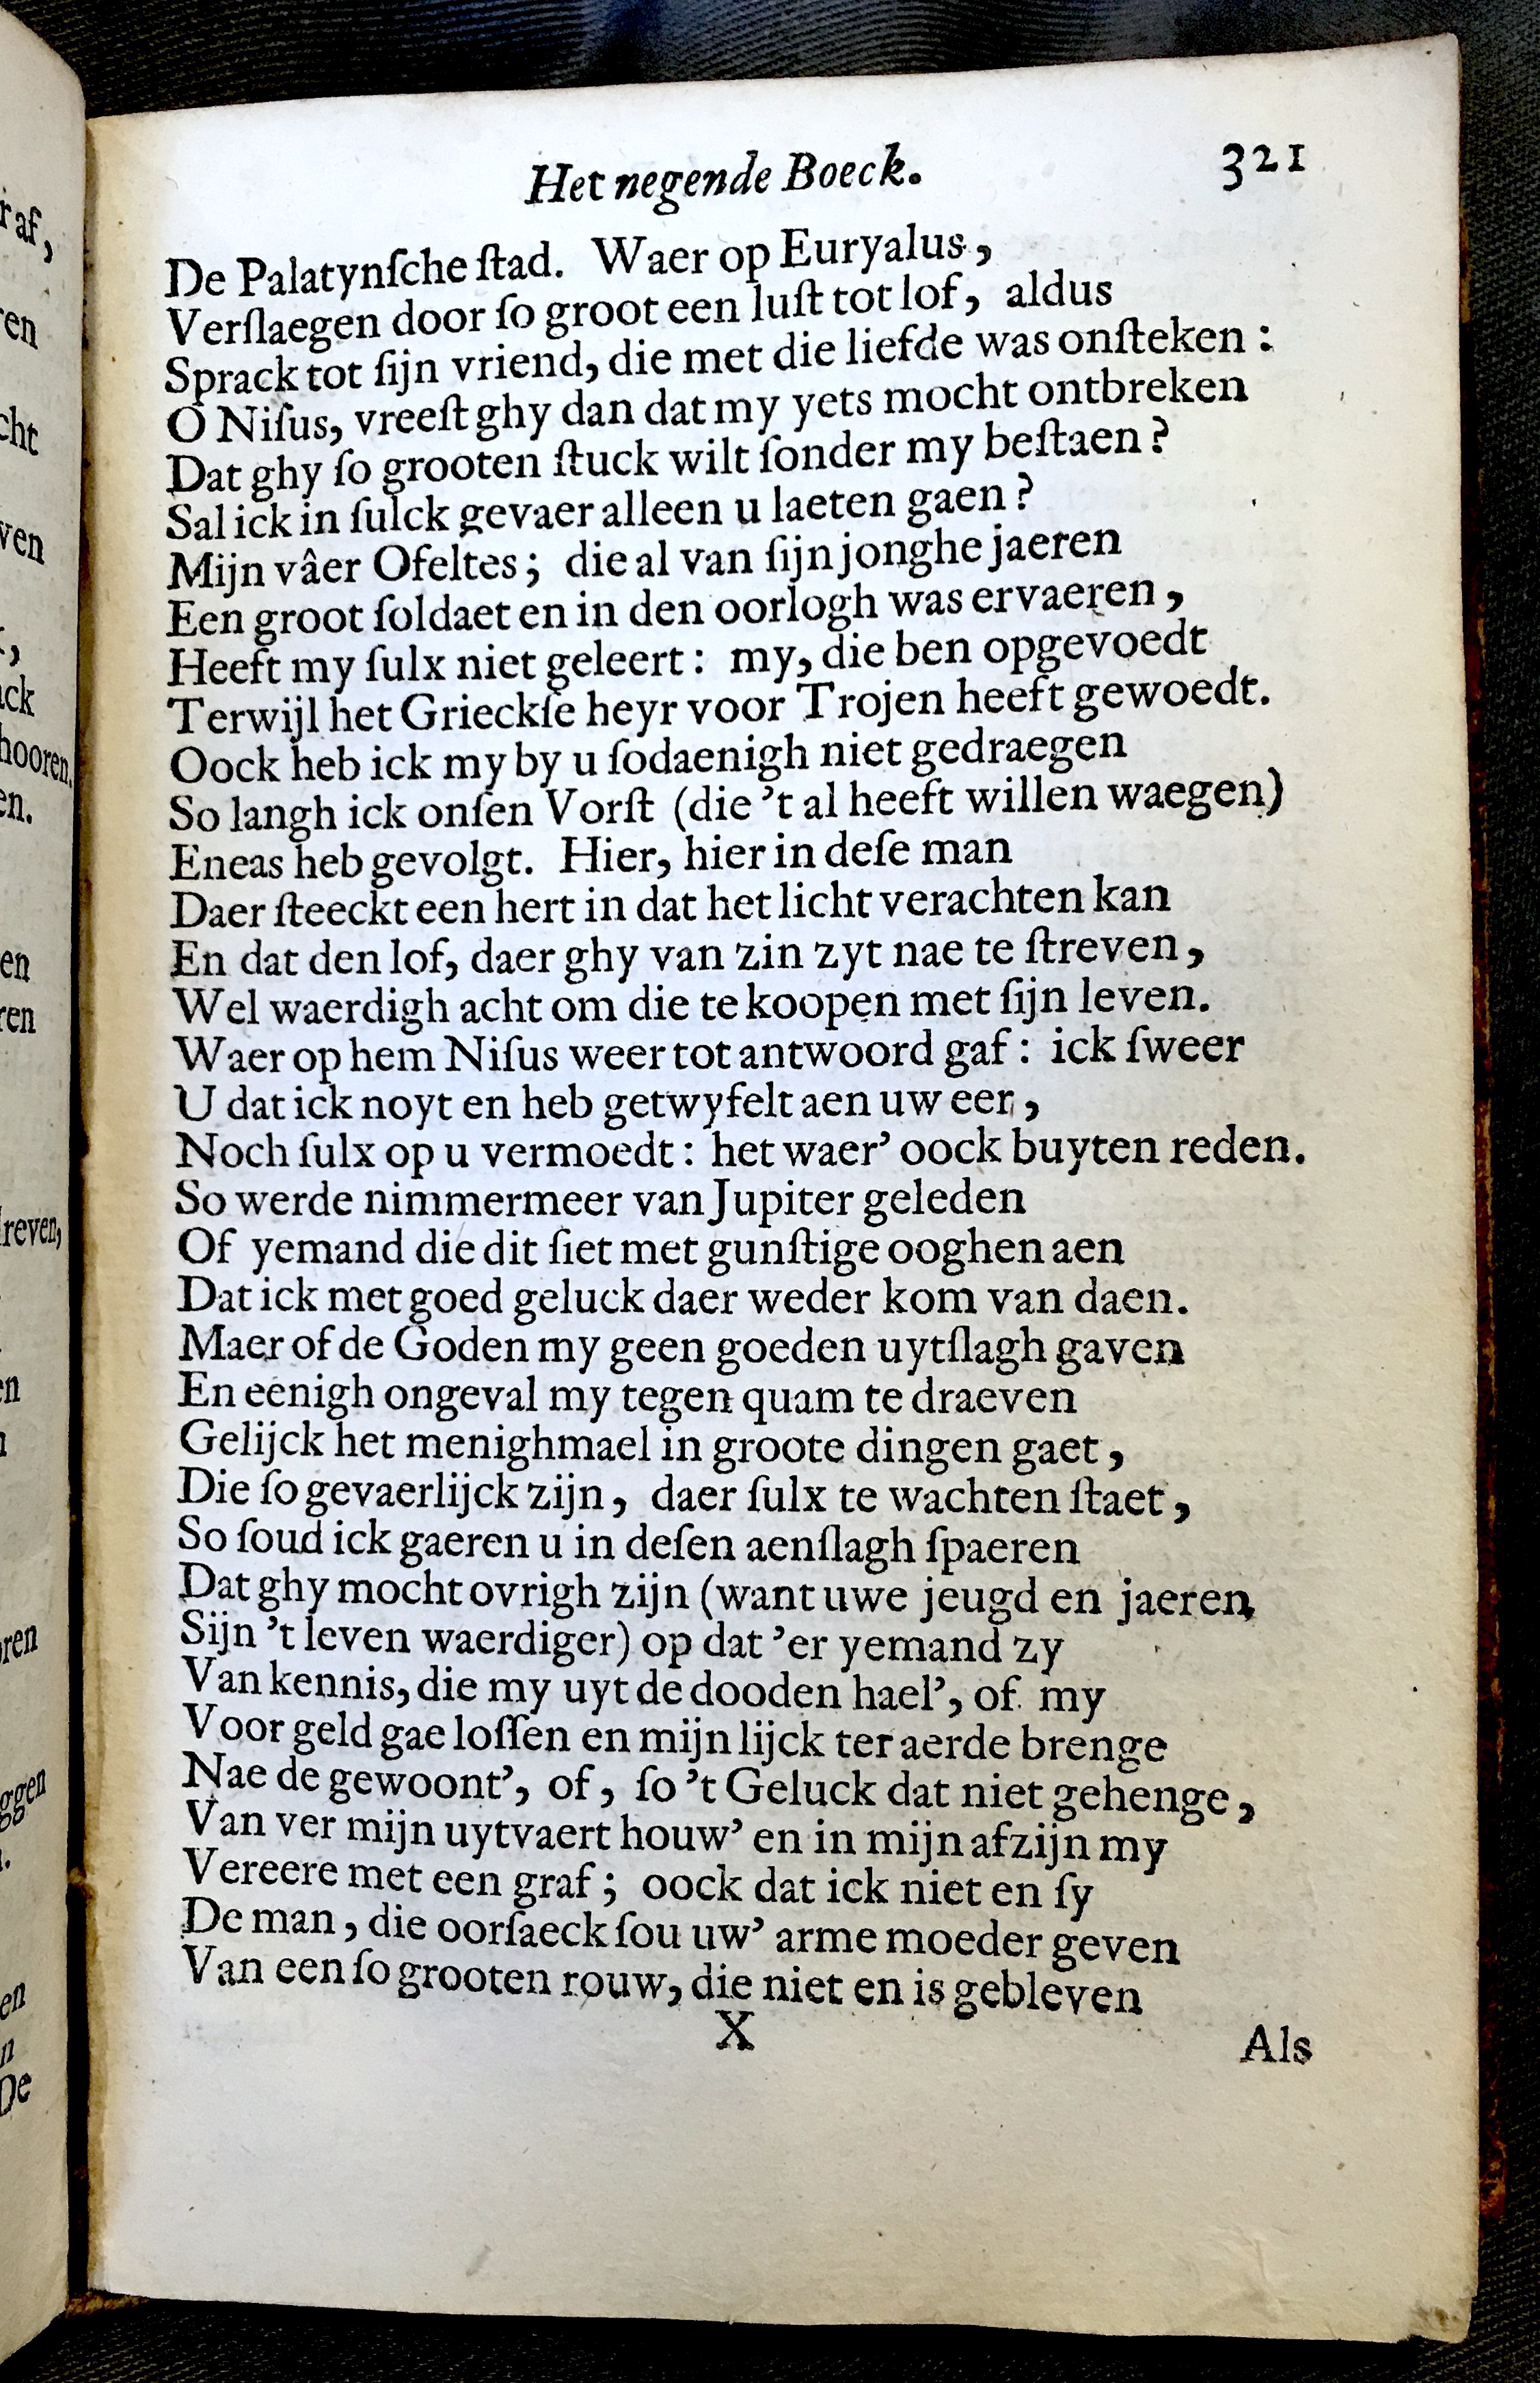 Het negende Boeck. 321
De Palatynſche ſtad. Waer op Euryalus,
Verſlaegen door ſo groot een luſt tot lof, aldus
Sprack tot ſijn vriend, die met die liefde was onſteken:
O Niſus, vreeſt ghy dan dat my yets mocht ontbreken
Dat ghy ſo grooten ſtuck wilt ſonder my beſtaen?
Sal ick in ſulck gevaer alleen u laeten gaen?
Mijn vâer Ofeltes; die al van ſijn jonghe jaeren
Een groot ſoldaet en in den oorlogh was ervaeren,
Heeft my ſulx niet geleert: my, die ben opgevoedt
Terwijl het Grieckſe heyr voor Trojen heeft gewoedt.
Oock heb ick my by u ſodaenigh niet gedraegen
So langh ick onſen Vorſt (die 't al heeft willen waegen)
Eneas heb gevolgt. Hier, hier in deſe man
Daer ſteeckt een hert in dat het licht verachten kan
En dat den lof, daer ghy van zin zyt nae te ſtreven,
Wel waerdigh acht om die te koopen met ſijn leven.
Waer op hem Niſus weer tot antwoord gaf: ick ſweer
U dat ick noyt en heb getwyfelt aen uw eer,
Noch ſulx op u vermoedt: het waer' oock buyten reden.
So werde nimmermeer van Jupiter geleden
Of yemand die dit ſiet met gunſtige ooghen aen
Dat ick met goed geluck daer weder kom van daen.
Maer of de Goden my geen goeden uytſlagh gaven
En eenigh ongeval my tegen quam te draeven
Gelijck het menighmael in groote dingen gaet,
Die ſo gevaerlijck zijn, daer ſulx te wachten ſtaet,
So ſoud ick gaeren u in deſen aenſlagh ſpaeren
Dat ghy mocht ovrigh zijn (want uwe jeugd en jaeren
Sijn 't leven waerdiger) op dat 'er yemand zy
Van kennis, die my uyt de dooden hael', of my
Voor geld gae loſſen en mijn lijck ter aerde brenge
Nae de gewoont', of, ſo 't Geluck dat niet gehenge,
Van ver mijn uytvaert houw' en in mijn afzijn my
Vereere met een graf; oock dat ick niet en ſy
De man, die oorſaeck ſou uw' arme moeder geven
Van een ſo grooten rouw, die niet en is gebleven
X
Als